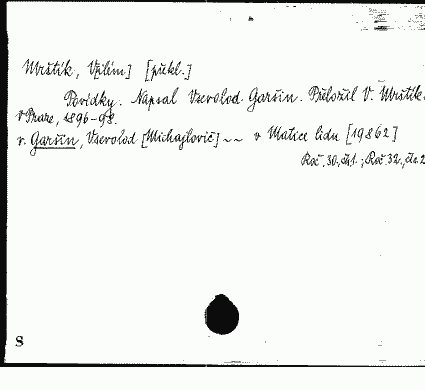 Mrštík, Vilém] [překl.]
Povídky. Napsal Vsevolod Garšin. Přeložil V. Mrštík.
V Praze, 1896-98.
v. Garšin, Vsevolod [Michajlovič] ~~ v Matice lidu [19862]
Roč. 30., čís. 1.; Roč. 32., čís. 2
S